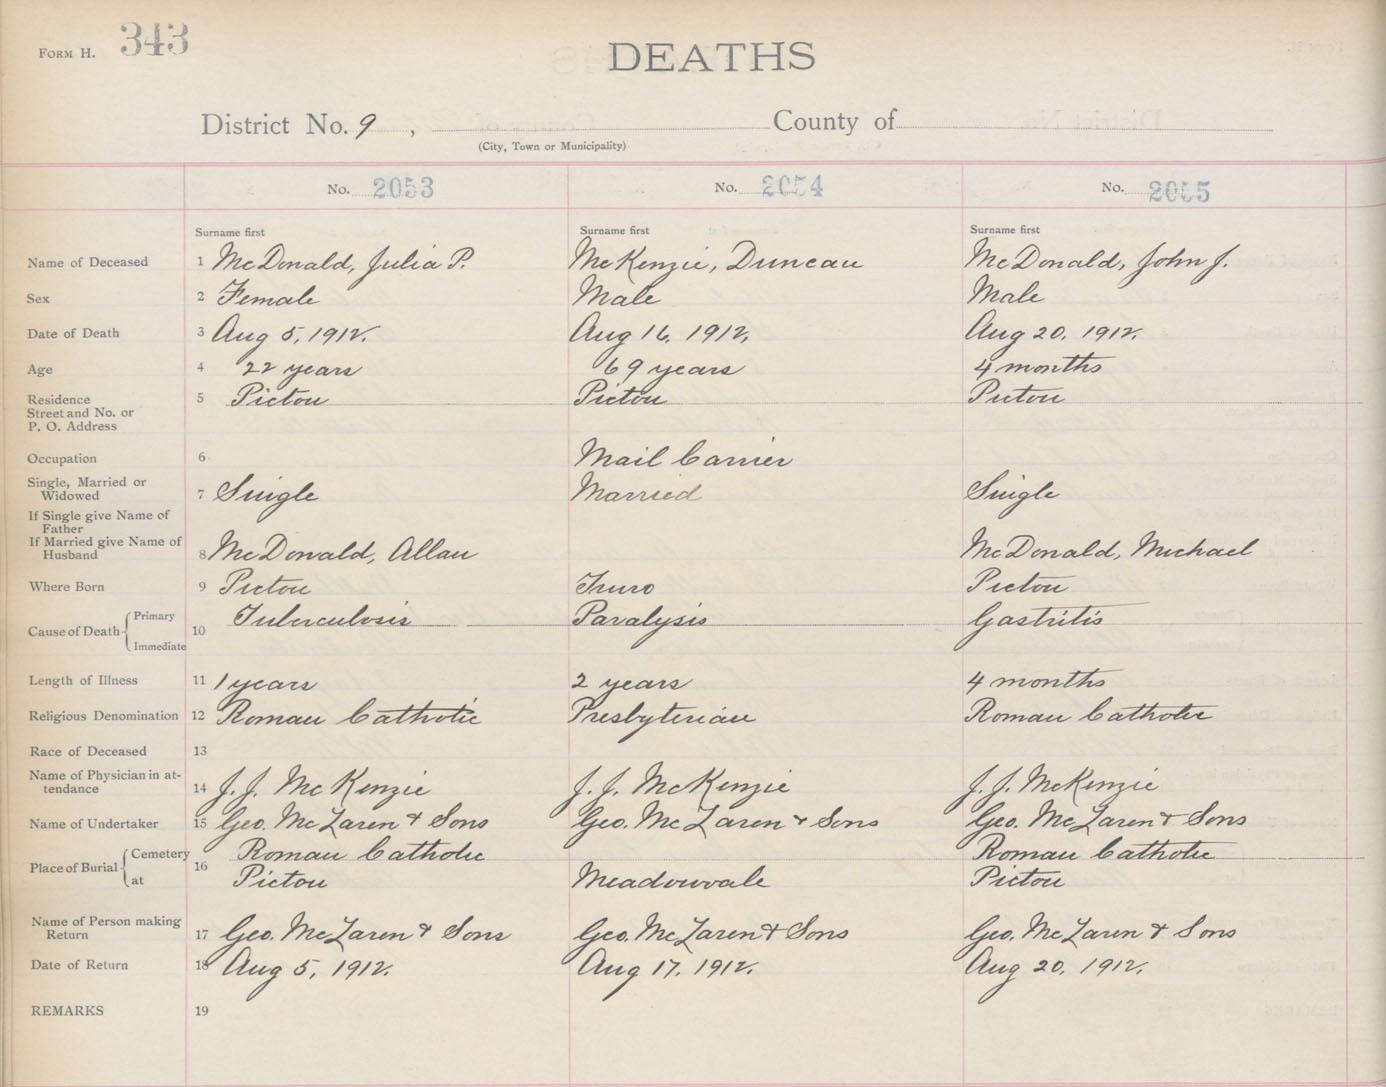 FORM H. 343
DEATHS
District No. 9 , County of
(City, Town or Municipality)
No. 2053 No. 2054 No. 2055
Surname first Surname first Surname first
Name of Deceased 1 McDonald, Julia P. McKenzie, Duncan McDonald, John J.
Sex 2 Female Male Male
Date of Death 3 Aug 5, 1912. Aug 16, 1912, Aug 20, 1912,
Age 4 22 years 69 years 4 months
Residence 5 Pictou Pictou Pictou
Street and No. or
P. O. Address
Occupation 6 Mail Carrier
Single, Married or
Widowed 7 Single Married Single
If Single give Name of
Father
If Married give Name of
Husband 8 McDonald, Allan McDonald, Michael
Where Born 9 Pictou Truro Pictou
Cause of Death Primary 10 Tuberculosis Paralysis Gastritis
Immediate
Length of Illness 11 1 years 2 years 4 months
Religious Denomination 12 Roman Catholic Presbyterian Roman Catholic
Race of Deceased 13
Name of Physician in at-
tendance 14 J. J. McKenzie J. J. McKenzie J. J. McKenzie
Name of Undertaker 15 Geo. McLaren & Sons Geo. McLaren & Sons Geo. McLaren & Sons
Place of Burial Cemetery 16 Roman Catholic Roman Catholic
at Pictou Meadowvale Pictou
Name of Person making
Return 17 Geo. McLaren & Sons Geo. McLaren & Sons Geo. McLaren & Sons
Date of Return 18 Aug 5, 1912. Aug 17, 1912. Aug 20, 1912,
REMARKS 19